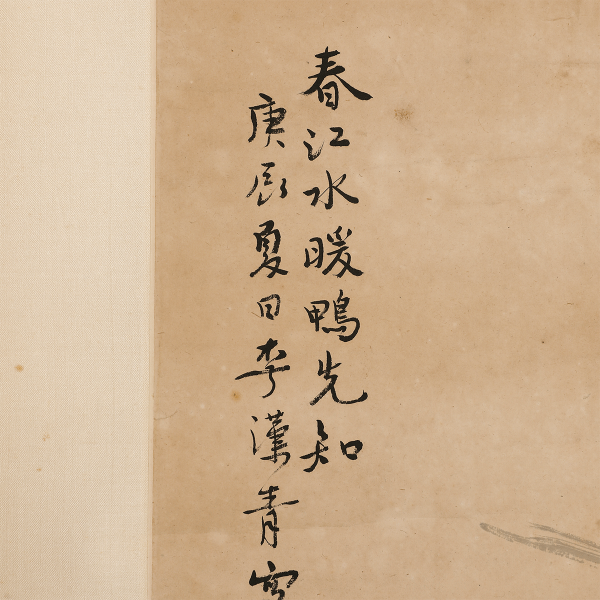 春江水暖鴨先知
庚辰夏日李漢青寫